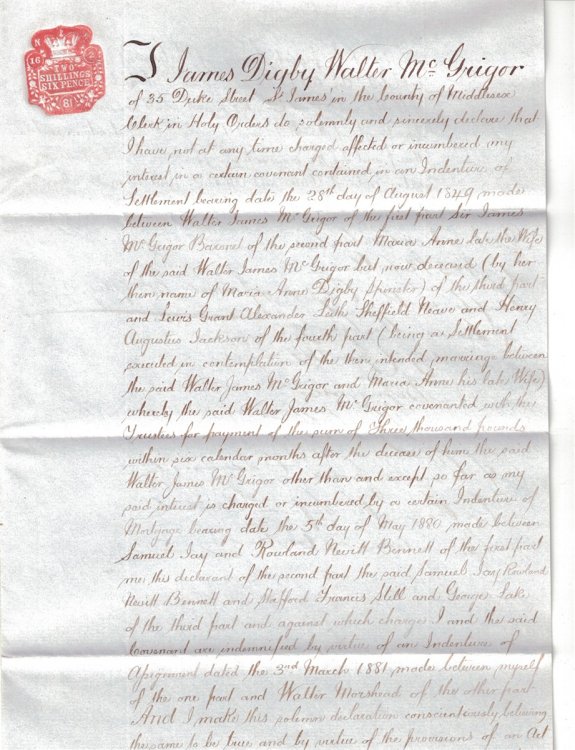 N
16 2
TWO
SHILLINGS
SIX PENCE
81
I James Digby Walter Mc Grigor
of 35 Duke Street St James in the County of Middlesex
Clerk in Holy Orders do solemnly and sincerely declare that
I have not at any time charged affected or incumbered my
interest in a certain covenant contained in an Indenture of
Settlement bearing date the 28th day of August 1849 made
between Walter James Mc Grigor of the first part Sir James
Mc Grigor Baronet of the second part Maria Anne late the Wife
of the said Walter James Mc Grigor but now deceased (by her
then name of Maria Anne Digby Spinster) of the third part
and Lewis Grant Alexander Leith Sheffield Neave and Henry
Augustus Jackson of the fourth part (being a Settlement
executed in contemplation of the then intended marriage between
the said Walter James Mc Grigor and Maria Anne his late Wife)
whereby the said Walter James Mc Grigor covenanted with the
Trustees for payment of the sum of Three thousand pounds
within six calendar months after the decease of him the said
Walter James Mc Grigor other than and except so far as my
said interest is charged or incumbered by a certain Indenture of
Mortgage bearing date the 5th day of May 1880 made between
Samuel Jay and Rowland Nevitt Bennett of the first part
me this declarant of the second part the said Samuel Jay Rowland
Nevitt Bennett and Stafford Francis Still and George Lake
of the third part and against which charge I and the said
Covenant are indemnified by virtue of an Indenture of
Assignment dated the 3rd March 1881 made between myself
of the one part and Walter Morshead of the other part
And I make this solemn declaration conscientiously believing
the same to be true and by virtue of the provisions of an Act